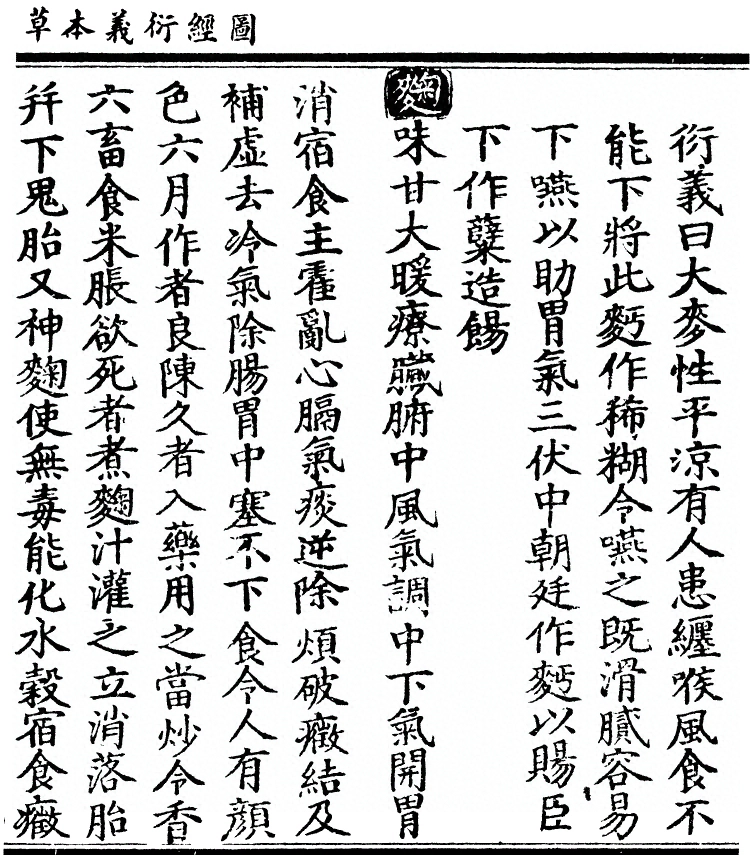 圖經衍義本草
衍義曰大麥性平涼有人患纏喉風食不
能下將此麫作稀糊令嚥之既滑膩容易
下嚥以助胃氣三伏中朝廷作麫以賜臣
下作蘖造餳
麴
味甘大暖療臟腑中風氣調中下氣開胃
消宿食主霍亂心膈氣痰逆除煩破癥結及
補虛去冷氣除腸胃中塞不下食令人有顏
色六月作者良陳久者入藥用之當炒令香
六畜食米脹欲死者煮麴汁灌之立消落胎
并下鬼胎又神麴使無毒能化水穀宿食癥